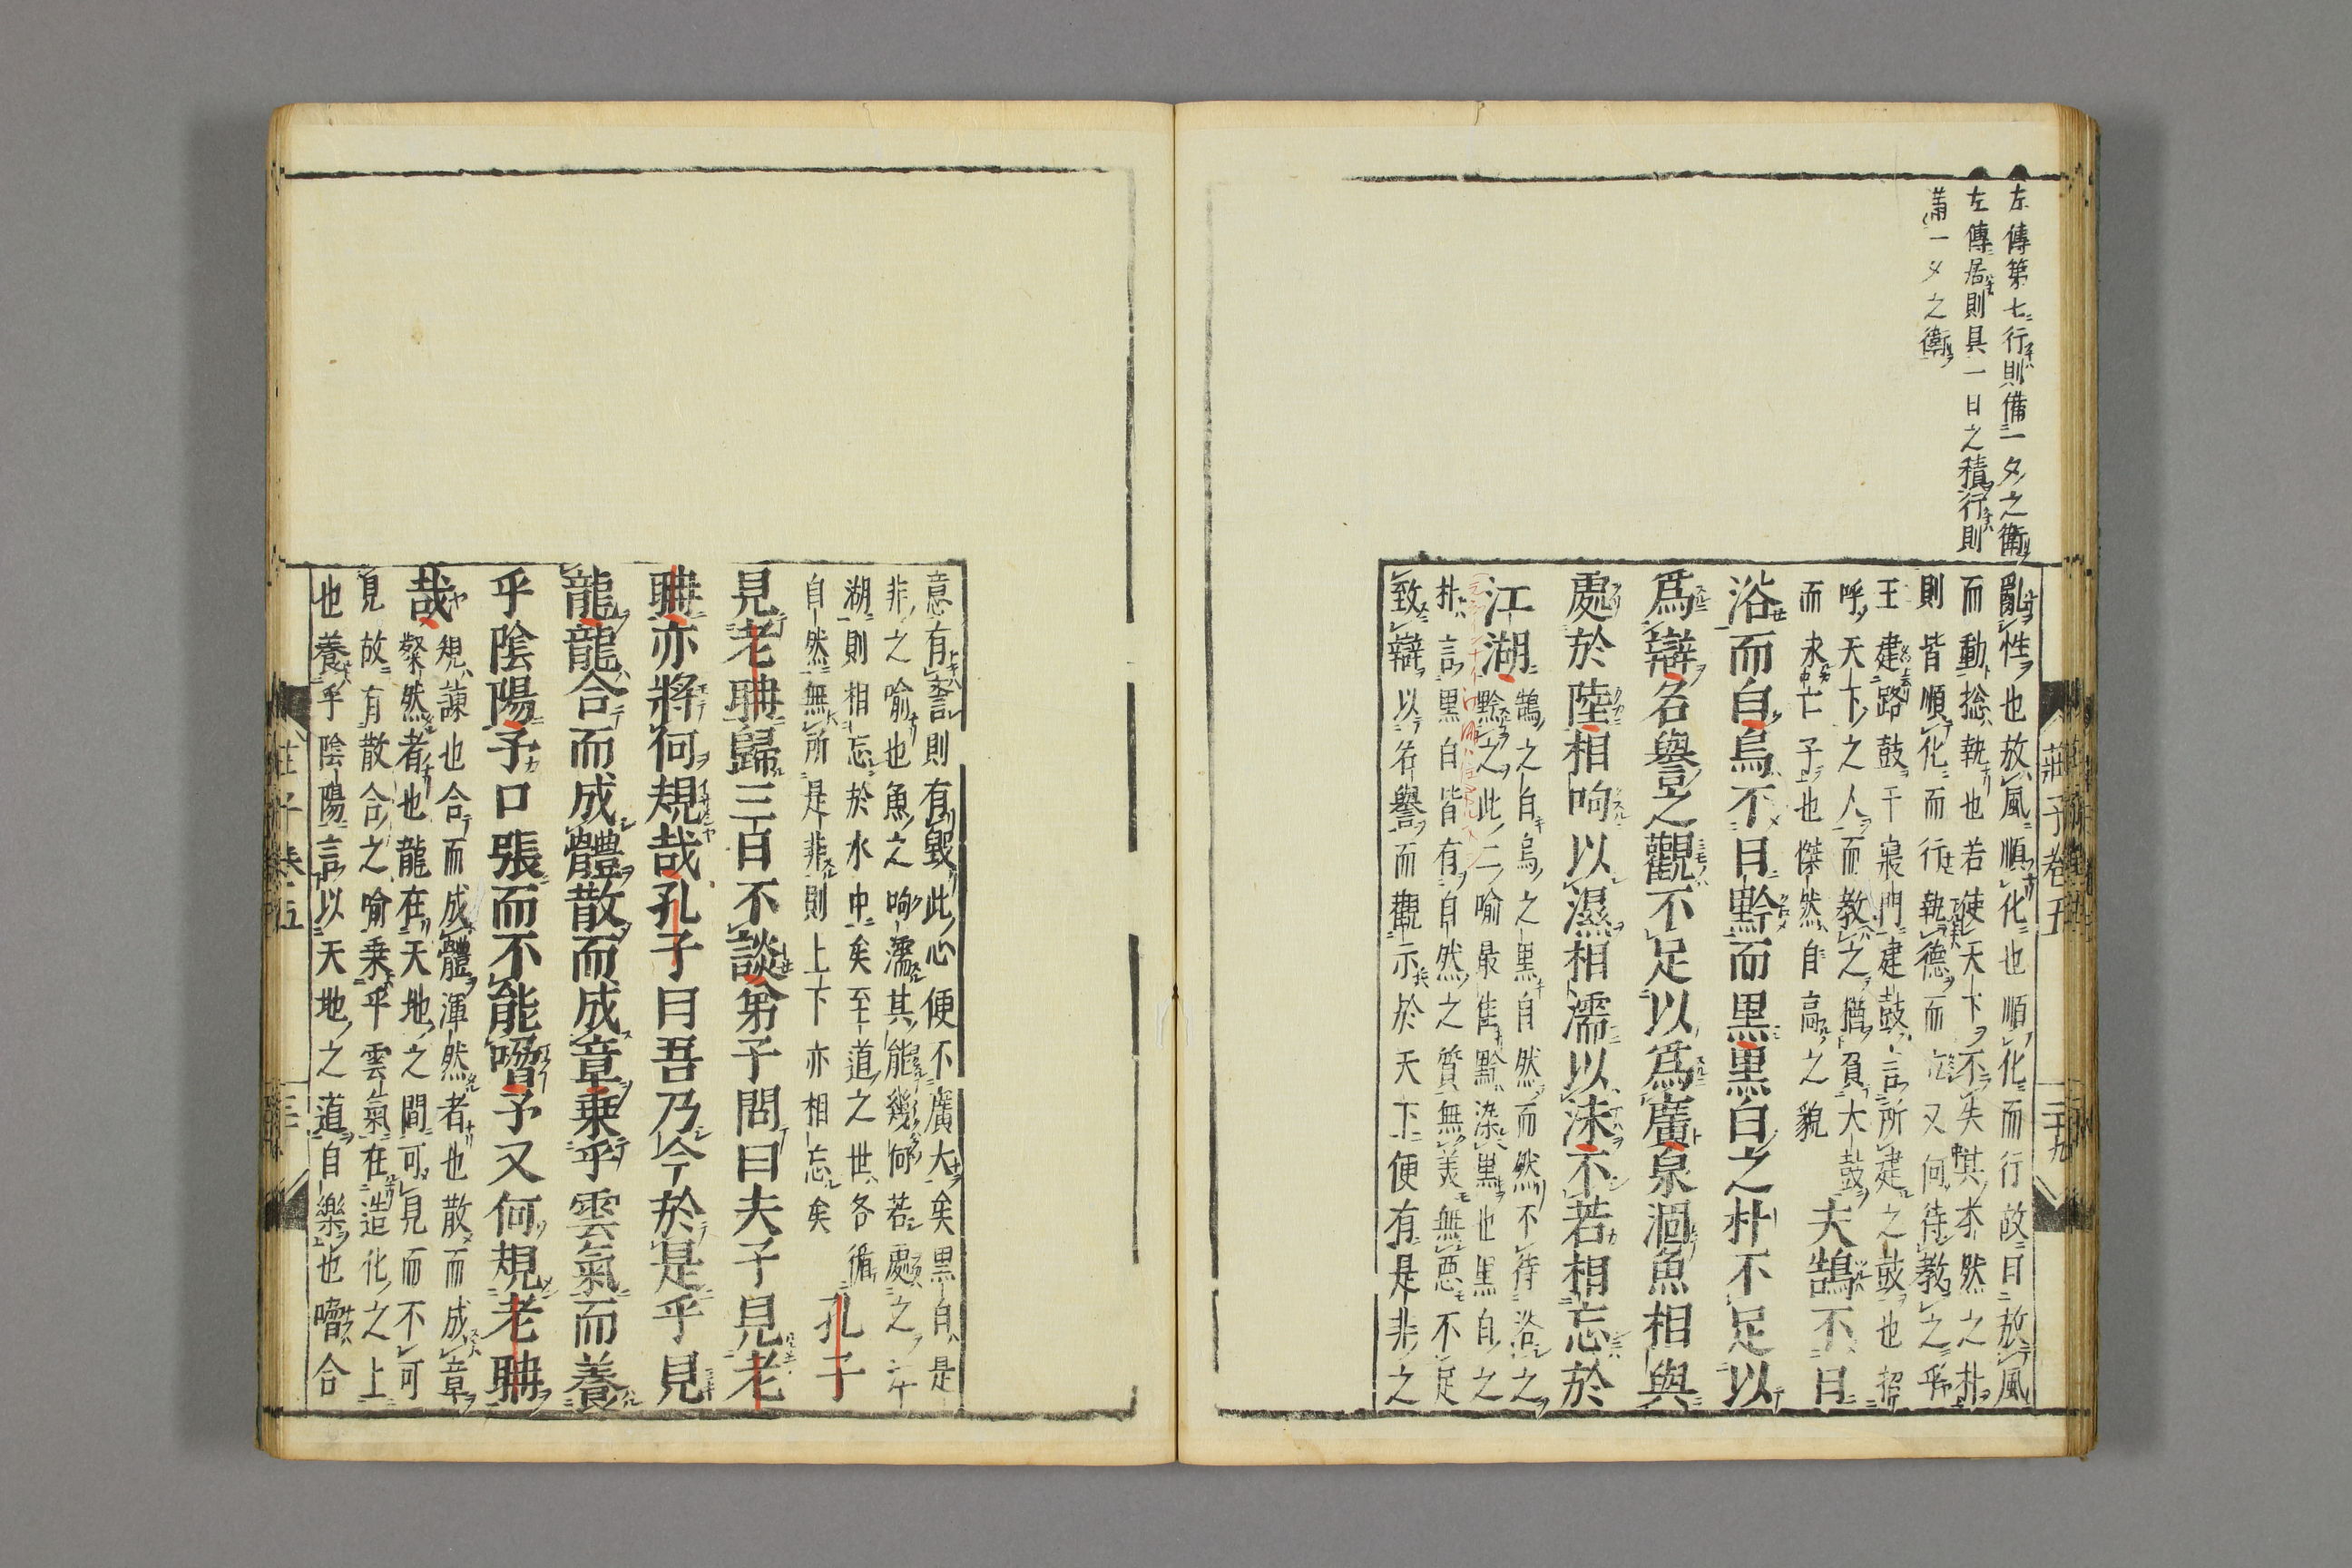 左傳第七行則備一夕之衛
左傳居則具一日之積行則
備一夕之衛
亂性也放風順化也順化而行故曰放風
而動捴執也若使天下不失其本然之朴
則皆順化而行執德而立又何待教之乎
王建路鼓于寢門建鼓言所建之鼓也招
呼天下之人而教之猶負大鼓
而求亡子也傑然自高之貌
夫鵠不日
浴而白烏不日黔而黒黒白之朴不足以
爲辯名譽之觀不足以爲廣泉涸魚相與
處於陸相呴以濕相濡以沫不若相忘於
江湖
鵠之白烏之黒自然而然不待浴之
黔之此二喻最佳黔染黒也黒白之
朴言黒白皆有自然之質無美無悪不足
致辯以名譽而觀示於天下便有是非之
莊子卷五
二十九
意有譽則有毀此心便不廣大矣黒白是
非之喻也魚之呴濡其能幾何若處之江
湖則相忘於水中矣至道之世各循
自然無所是非則上下亦相忘矣
孔子
見老聃歸三日不談弟子問曰夫子見老
聃亦將何規哉孔子曰吾乃今於是乎見
龍龍合而成體散而成章乗乎雲氣而養
乎陰陽予口張而不能嗋予又何規老聃
哉
規諫也合而成體渾然者也散而成章
粲然者也龍在天地之間可見而不可
見故有散合之喻乗乎雲氣在造化之上
也養乎陰陽言以天地之道自樂也嗋合
莊子卷五
三十